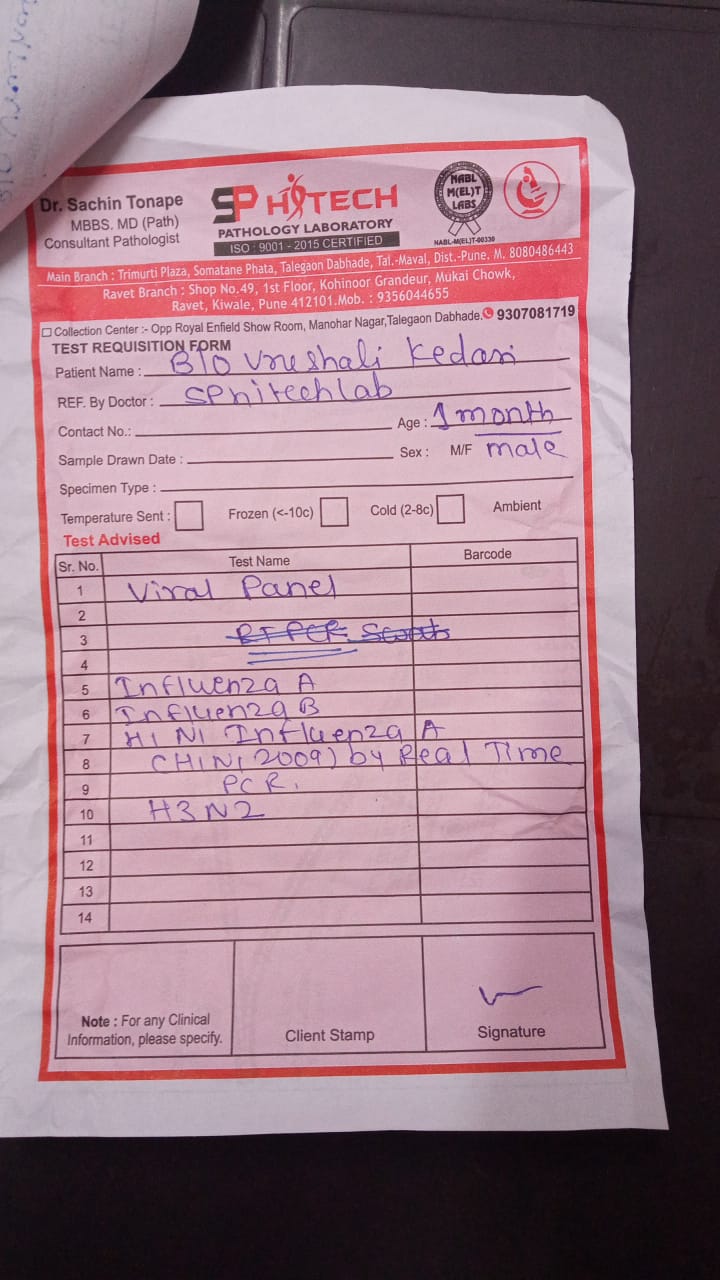 Dr. Sachin Tonape
MBBS. MD (Path)
Consultant Pathologist
SP HITECH
PATHOLOGY LABORATORY
ISO : 9001 - 2015 CERTIFIED
NABL
M(EL)T
LABS
NABL-M(EL)T-00330
Main Branch : Trimurti Plaza, Somatane Phata, Talegaon Dabhade, Tal.-Maval, Dist.-Pune, M. 8080486443
Ravet Branch : Shop No.49, 1st Floor, Kohinoor Grandeur, Mukai Chowk,
Ravet, Kiwale, Pune 412101.Mob. : 9356044655
Collection Center :- Opp Royal Enfield Show Room, Manohar Nagar,Talegaon Dabhade. 9307081719
TEST REQUISITION FORM
Patient Name : B/O Vrushali Kedari
REF. By Doctor : SPhitechlab
Contact No.: Age : 1 month
Sample Drawn Date : Sex : M/F male
Specimen Type :
Temperature Sent : Frozen (<-10c) Cold (2-8c) Ambient
Test Advised
Sr. No. Test Name Barcode
1 Viral Panel
2
3 RT PCR
4
5 Influenza A
6 Influenza B
7 H1N1 Influenza A
8 CH1N1 2009) by Real Time
9 PCR.
10 H3N2
11
12
13
14
Note : For any Clinical
Information, please specify.
Client Stamp
Signature